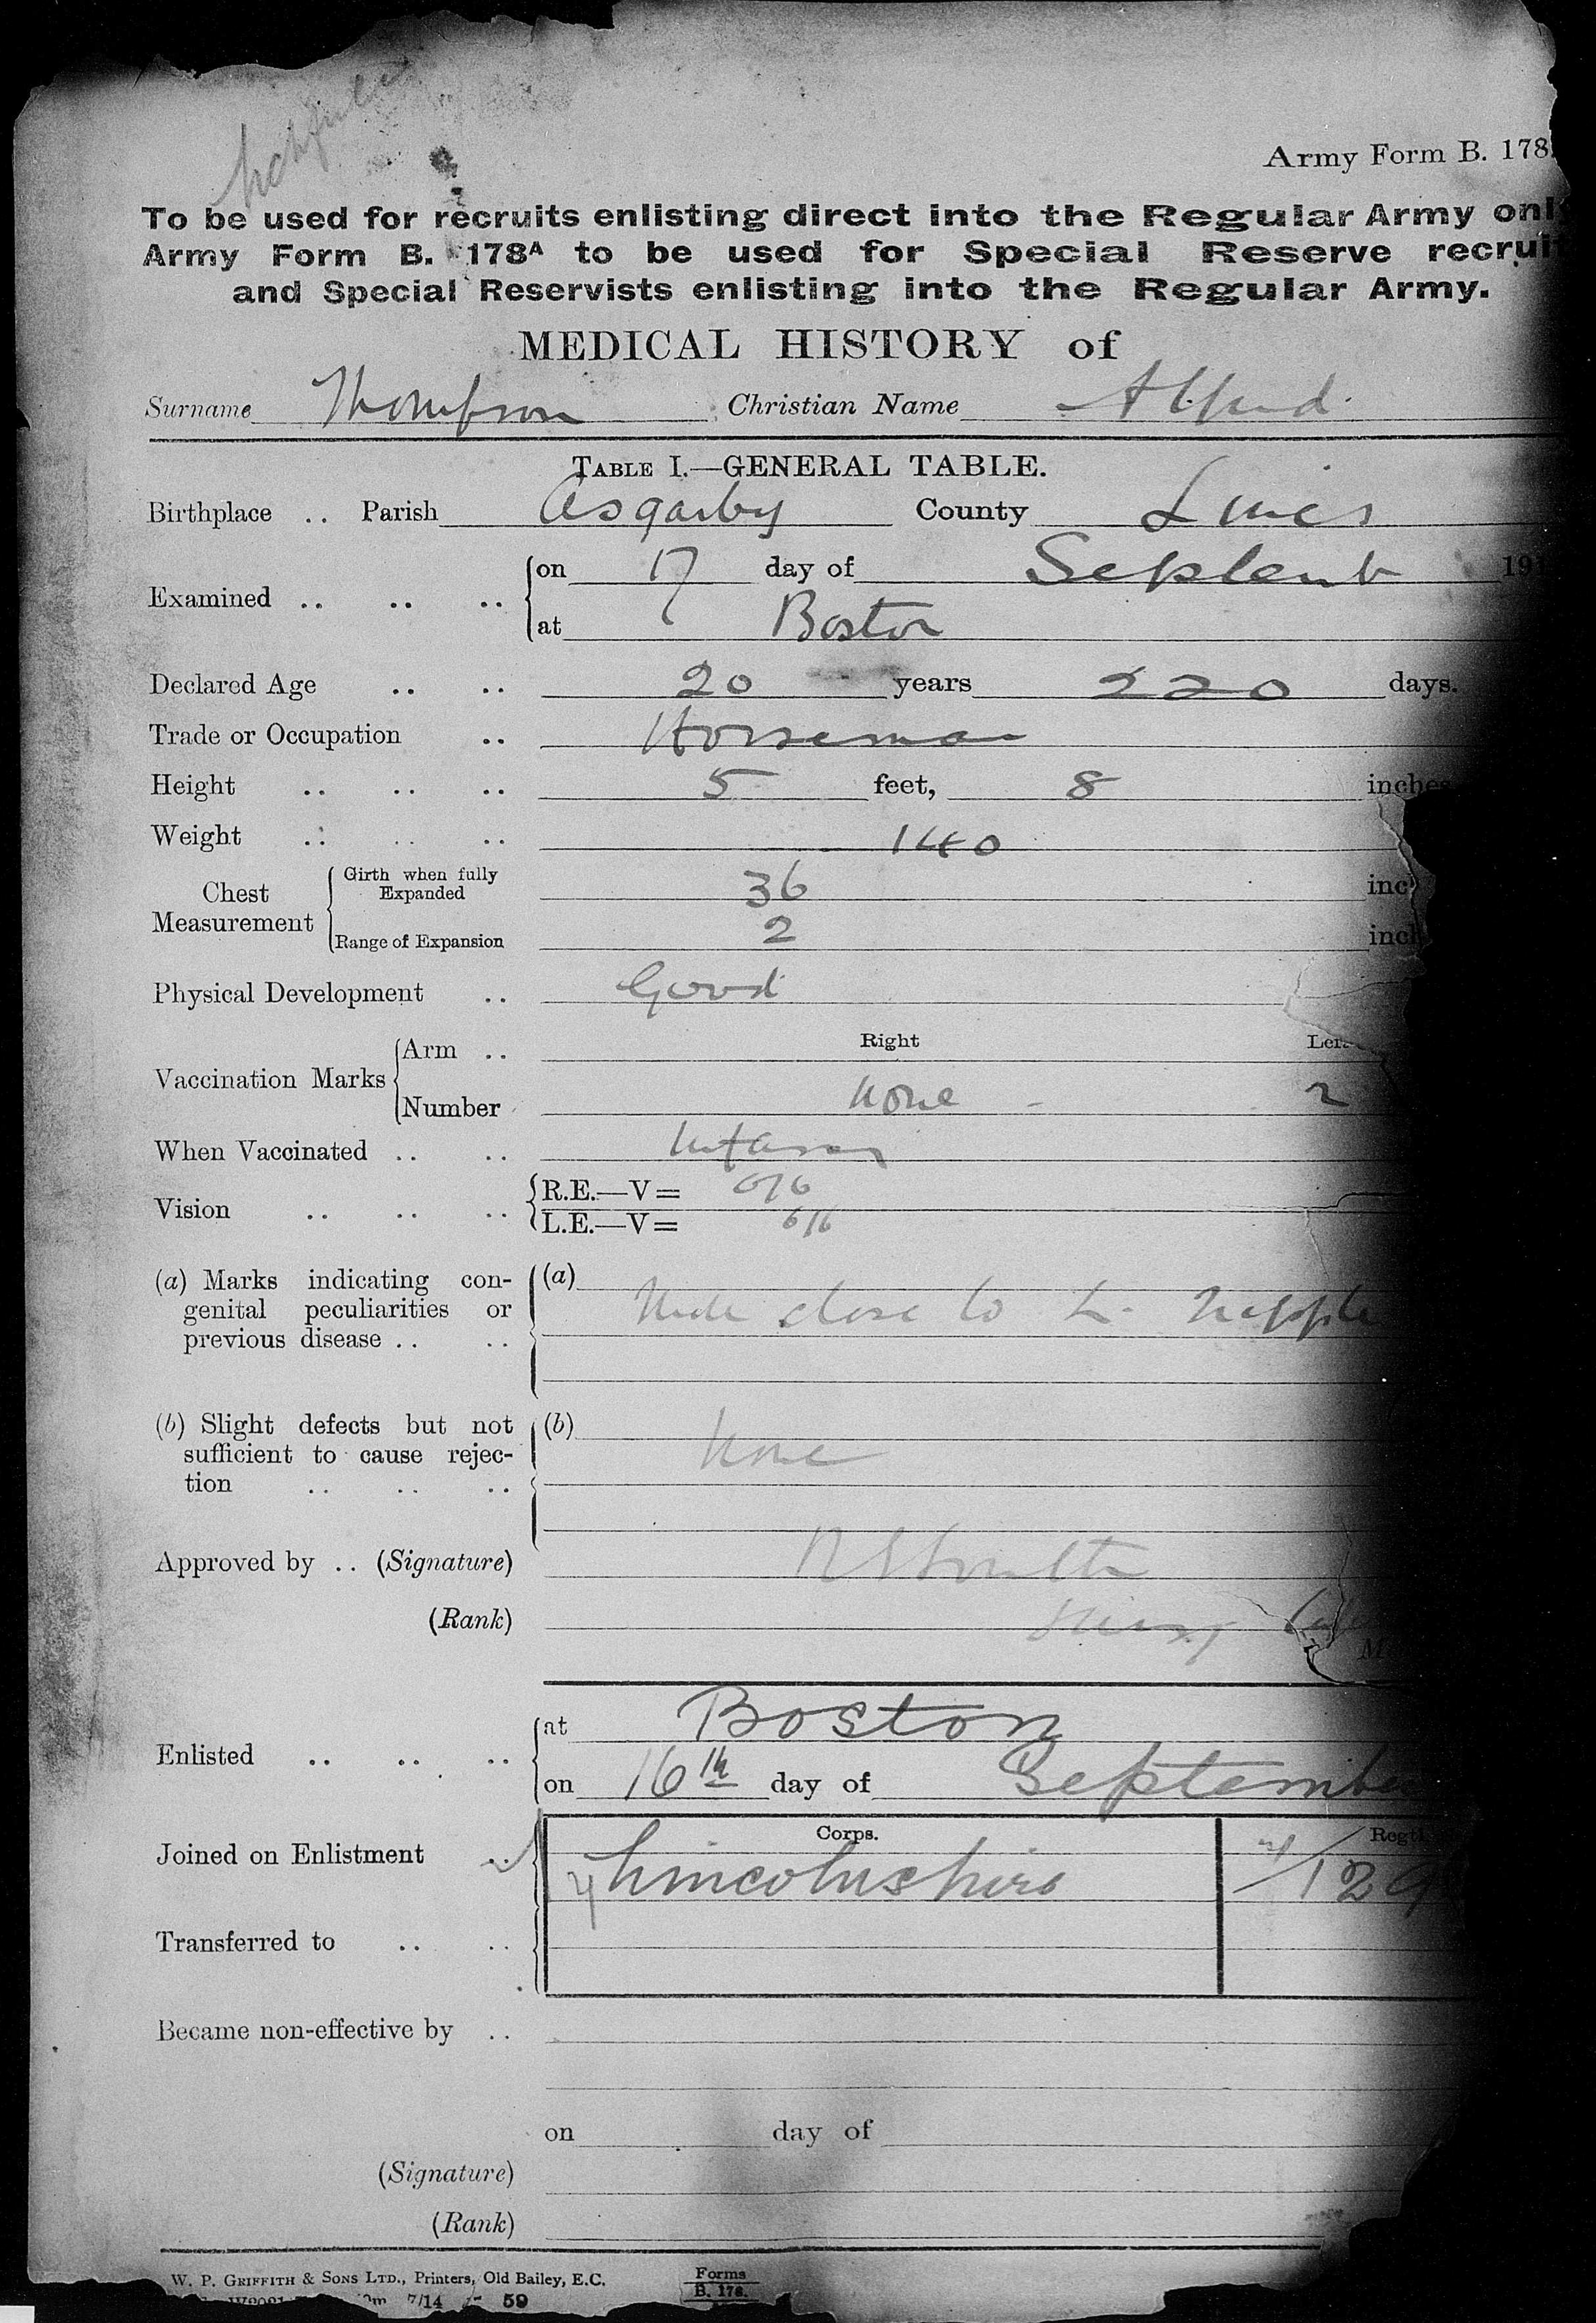 Army Form B. 178
To be used for recruits enlisting direct into the Regular Army onl
Army Form B. 178A to be used for Special Reserve recrui
and Special Reservists enlisting into the Regular Army.
MEDICAL HISTORY of
Surname Thompson Christian Name Alfred
TABLE I.—GENERAL TABLE.
Birthplace .. Parish Asgarby County Lincs
Examined .. .. .. on 17 day of Septemb 19
at Boston
Declared Age .. .. 20 years 220 days.
Trade or Occupation .. Horseman
Height .. .. .. 5 feet, 8 inches
Weight .. .. .. 140
Chest Measurement Girth when fully Expanded 36 inc
Range of Expansion 2 inch
Physical Development .. Good
Vaccination Marks Arm .. Right Left
Number none - 2
When Vaccinated .. .. Infancy
Vision .. .. .. R.E.—V= 6/6
L.E.—V= 6/6
(a) Marks indicating con- (a)
genital peculiarities or Mole close to L. Nipple
previous disease .. ..
(b) Slight defects but not (b) None
sufficient to cause rejec-
tion .. .. ..
Approved by .. (Signature)
(Rank)
M
Enlisted .. .. .. at Boston
on 16th day of September
Corps. Regtl
Joined on Enlistment .. Lincolnshire 129
Transferred to .. ..
Became non-effective by ..
on day of
(Signature)
(Rank)
W. P. GRIFFITH & SONS LTD., Printers, Old Bailey, E.C. Forms
B. 178.
7/14 59